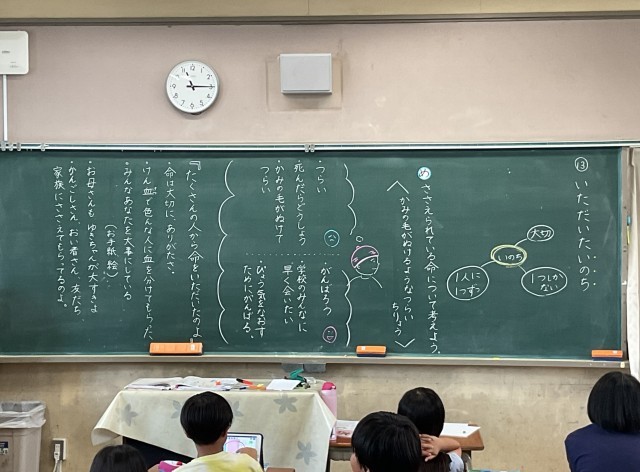 ⑬ いただいたいのち
大切
いのち
1人に
1つずつ
1つしか
ない
め ささえられている命について考えよう。
かみの毛がぬけるようなつらい
ちりょう
・つらい
・死んだらどうしよう
・かみの毛がぬけて
つらい
・がんばろう
・学校のみんなに
早く会いたい
・びょう気をなおす
ためにがんばる。
『たくさんの人から命をいただいたのよ』
・命は大切に、ありがたさ。
・けん血で色んな人に血を分けてもらった。
・みんなあなたを大事にしている
(お手紙、絵)
・お母さんも ゆきちゃんが大すきよ
・かんごしさん、おい者さん、友だち
家族にささえてもらってるのよ。